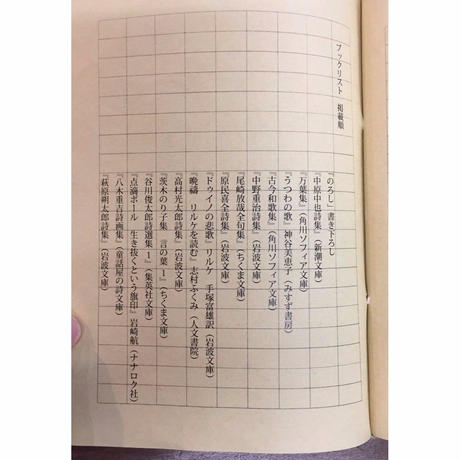 ブックリスト　掲載順
『のろし』書き下ろし
『中原中也詩集』（新潮文庫）
『万葉集』（角川ソフィア文庫）
『うつわの歌』神谷美恵子（みすず書房）
『古今和歌集』（角川ソフィア文庫）
『中野重治詩集』（岩波文庫）
『尾崎放哉全句集』（ちくま文庫）
『原民喜全詩集』（岩波文庫）
『ドゥイノの悲歌』リルケ　手塚富雄訳（岩波文庫）
『晩禱　リルケを読む』志村ふくみ（人文書院）
『高村光太郎詩集』（岩波文庫）
『茨木のり子集　言の葉１』（ちくま文庫）
『谷川俊太郎詩選集１』（集英社文庫）
『点滴ポール　生き抜くという旗印』岩崎航（ナナロク社）
『八木重吉詩画集』（童話屋の詩文庫）
『萩原朔太郎詩集』（岩波文庫）